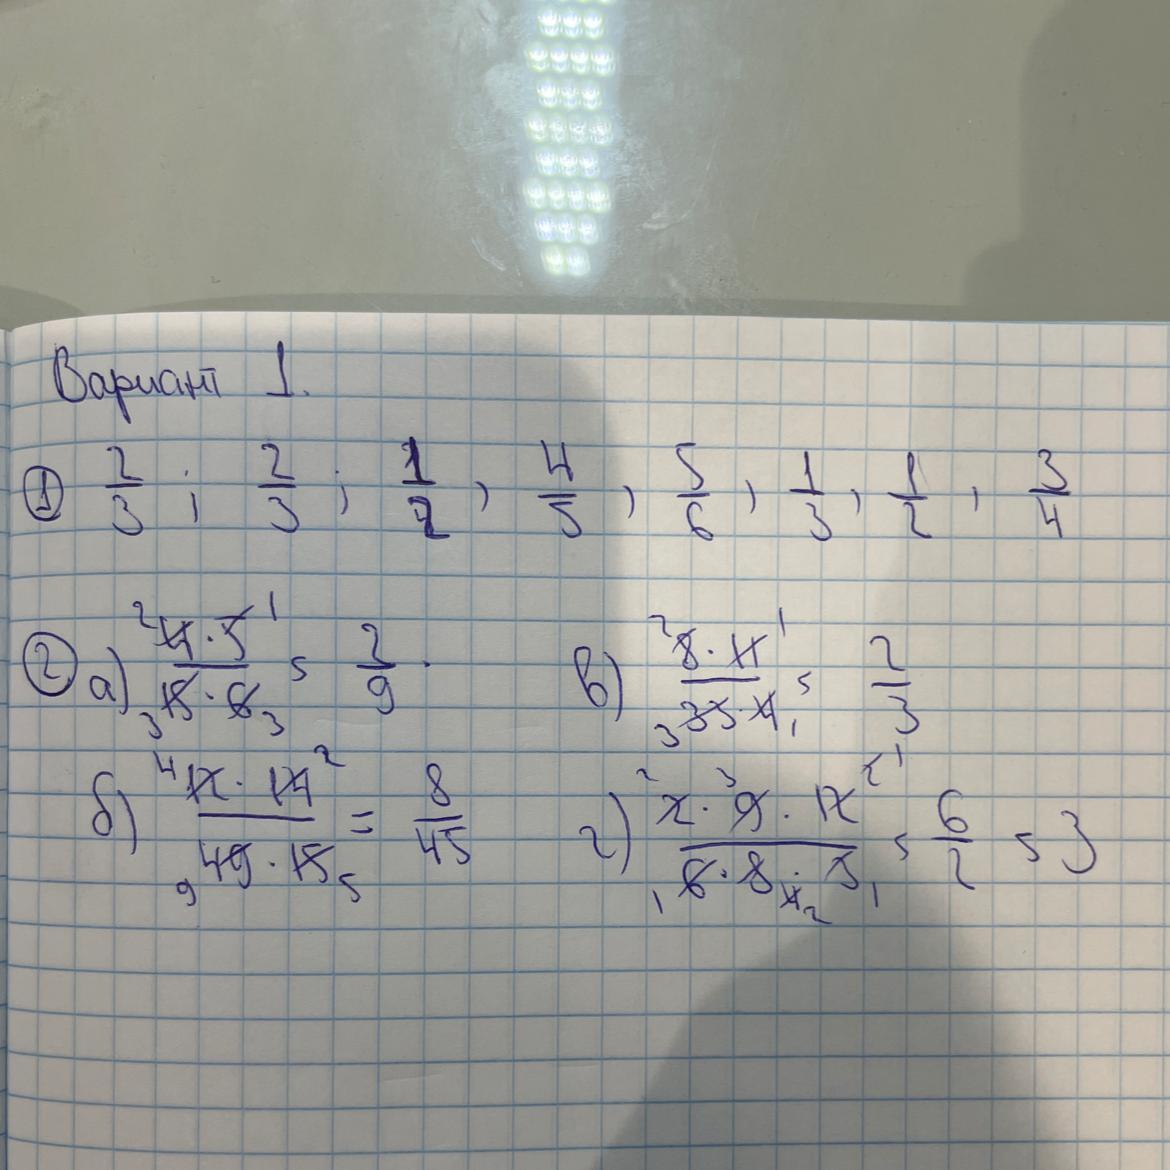 Вариант 1.
① 2/3 ; 2/3 ; 1/2 , 4/5 , 5/6 , 1/3 , 1/2 , 3/4
② а) ²4·5¹ / ₃15·6₃ = 2/9 .
в) ²8·11¹ / ₃33·4₁ = 2/3
б) ⁴12·14² / ₉49·15₅ = 8/45
г) 2·9·12 / 6·8·3 = 6/2 = 3